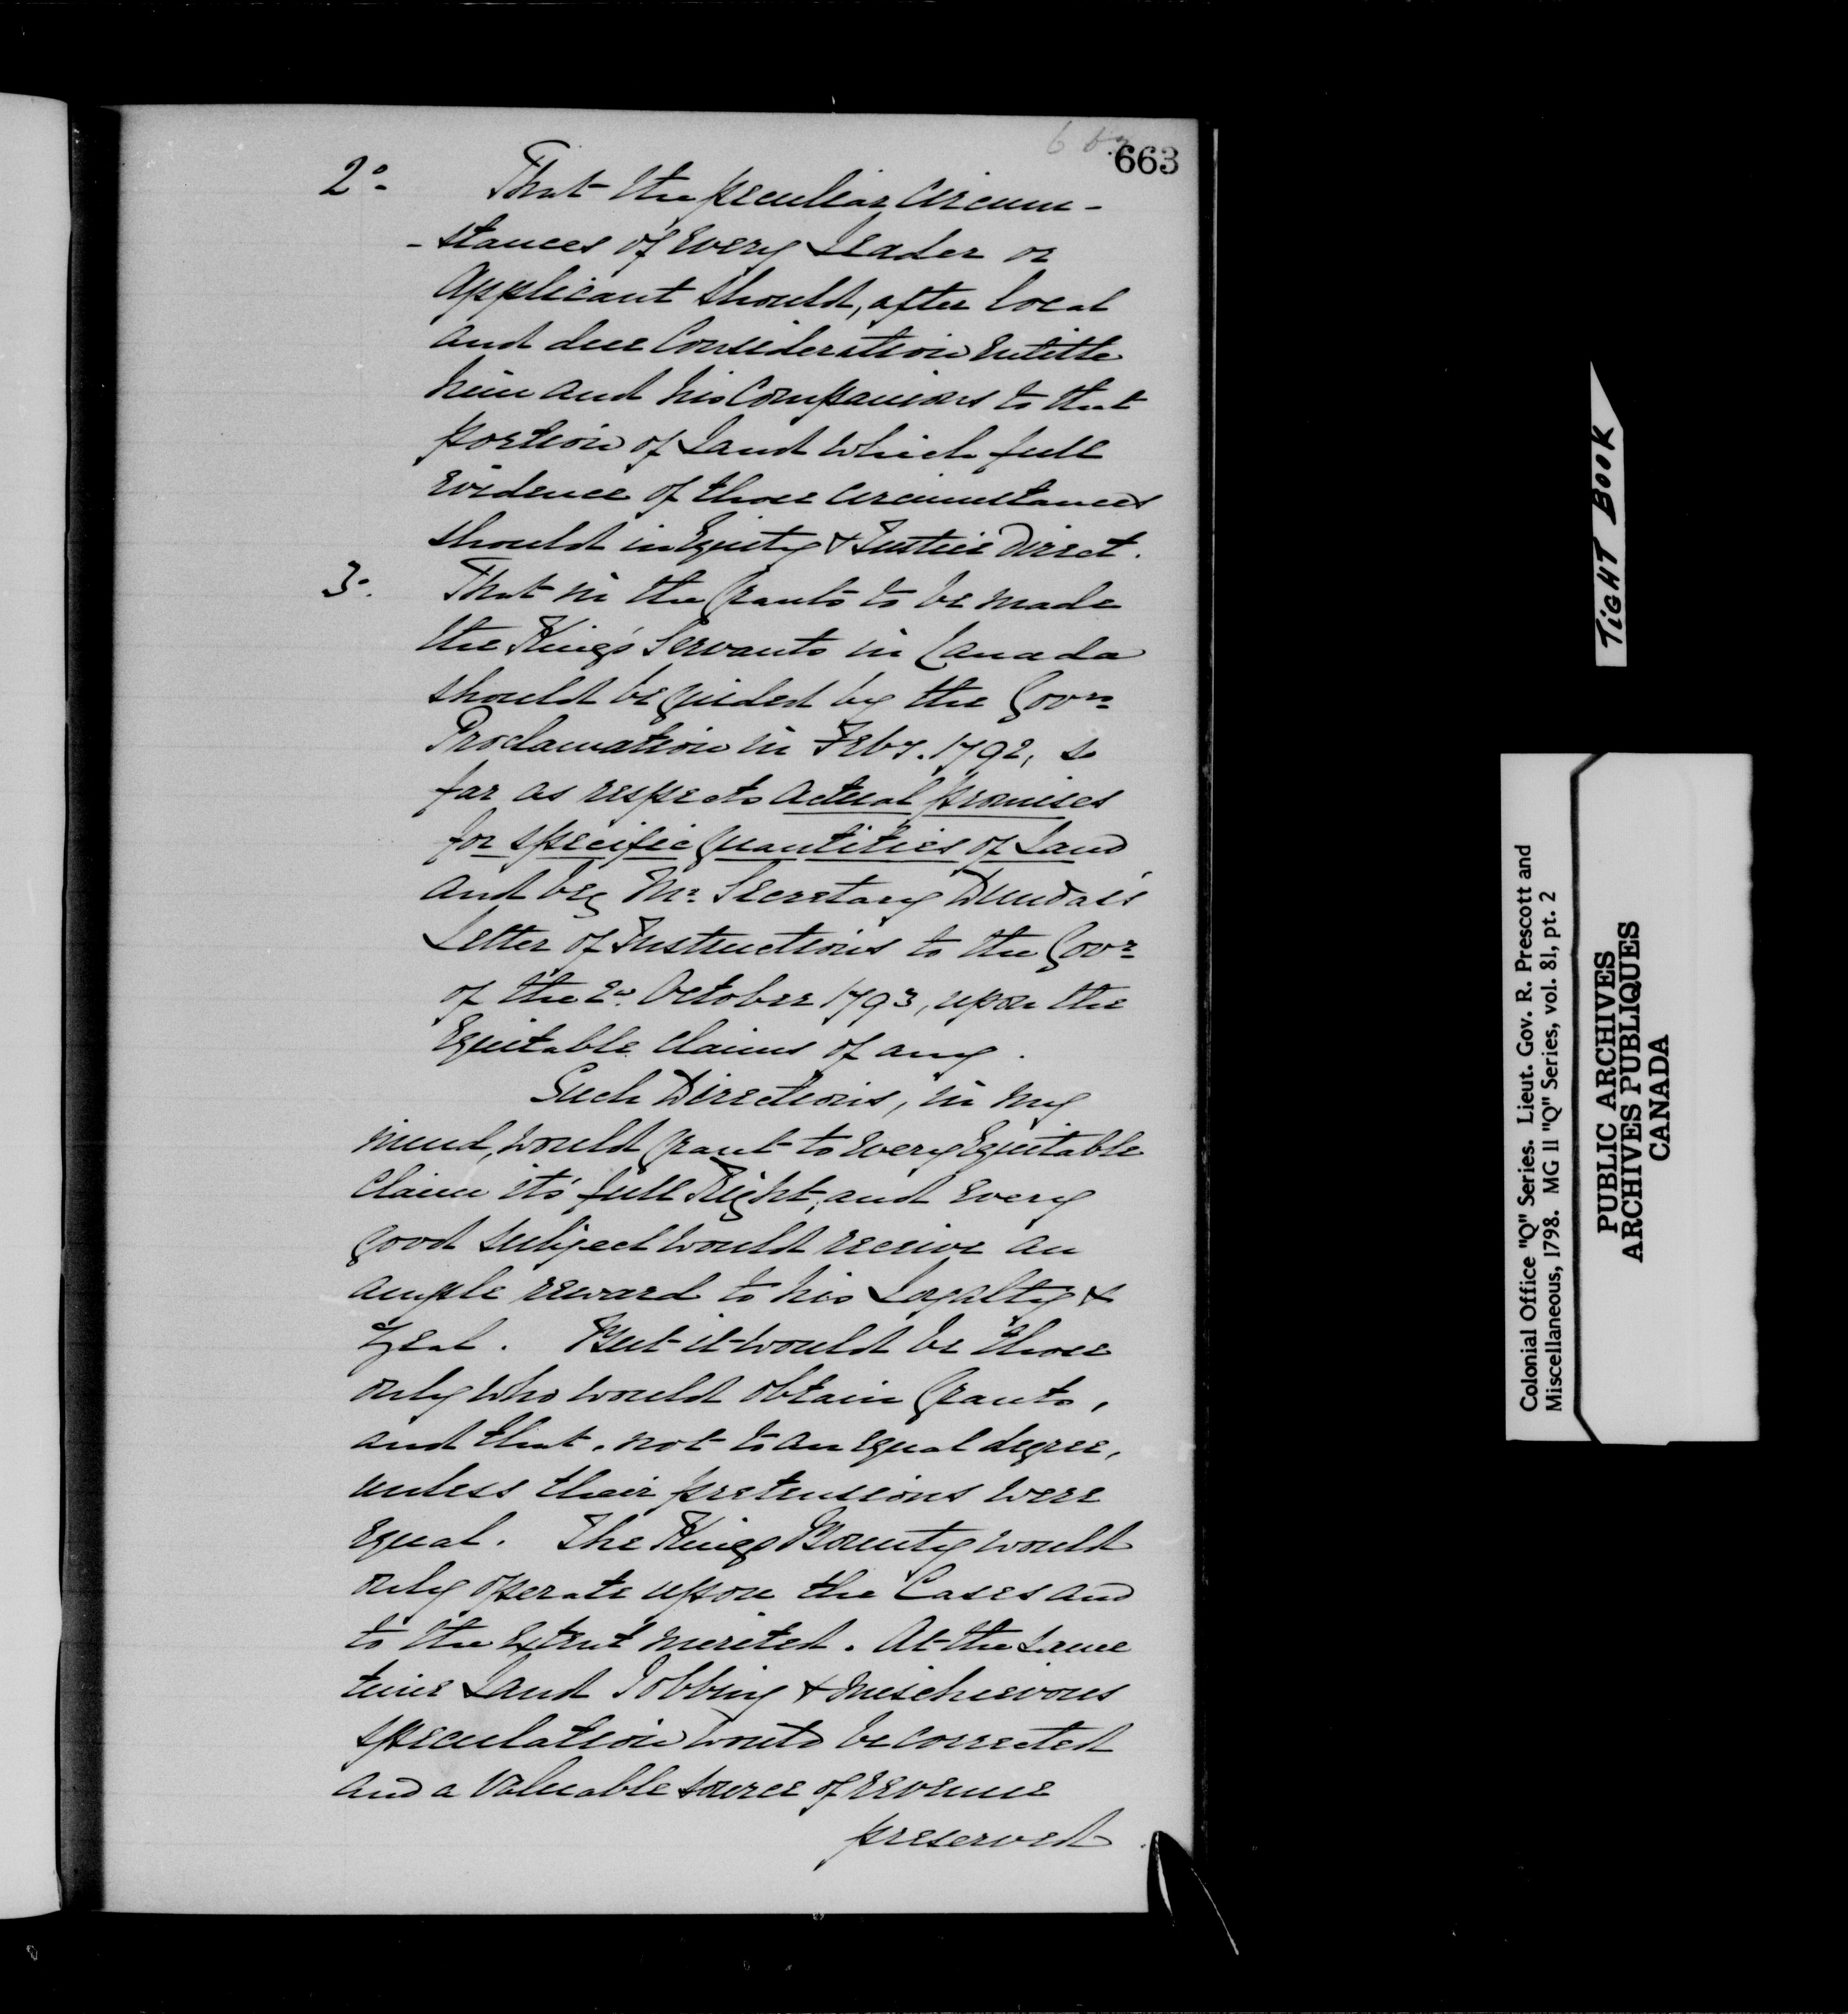 663
2o. That the peculiar circum-
-stances of every Leader or
Applicant should, after local
and due Consideration entitle
him and his Companions to that
portion of Land which full
evidence of those circumstances
should in Equity & Justice Direct.
3o. That in the Grants to be made
the King's Servants in Canada
should be guided by the Govrs
Proclamation in Feby. 1792, so
far as respects actual promises
for specific quantities of Land
and by Mr. Secretary Dundas's
Letter of Instructions to the Govr
of the 2d. October 1793, upon the
Equitable claims of any.
Such Directions, in my
mind, would grant to every Equitable
Claim its' full Right, and every
good subject would receive an
ample reward to his Loyalty &
zeal. But it would be those
only who would obtain Grants,
and that, not to an equal degree,
unless their pretensions were
equal. The Kings Bounty would
only operate upon the Cases and
to the extent merited. At the same
time Land Jobbing & mischievous
speculation would be corrected
and a valuable source of revenue
preserved
TIGHT BOOK
Colonial Office "Q" Series. Lieut. Gov. R. Prescott and
Miscellaneous, 1798. MG 11 "Q" Series, vol. 81, pt. 2
PUBLIC ARCHIVES
ARCHIVES PUBLIQUES
CANADA